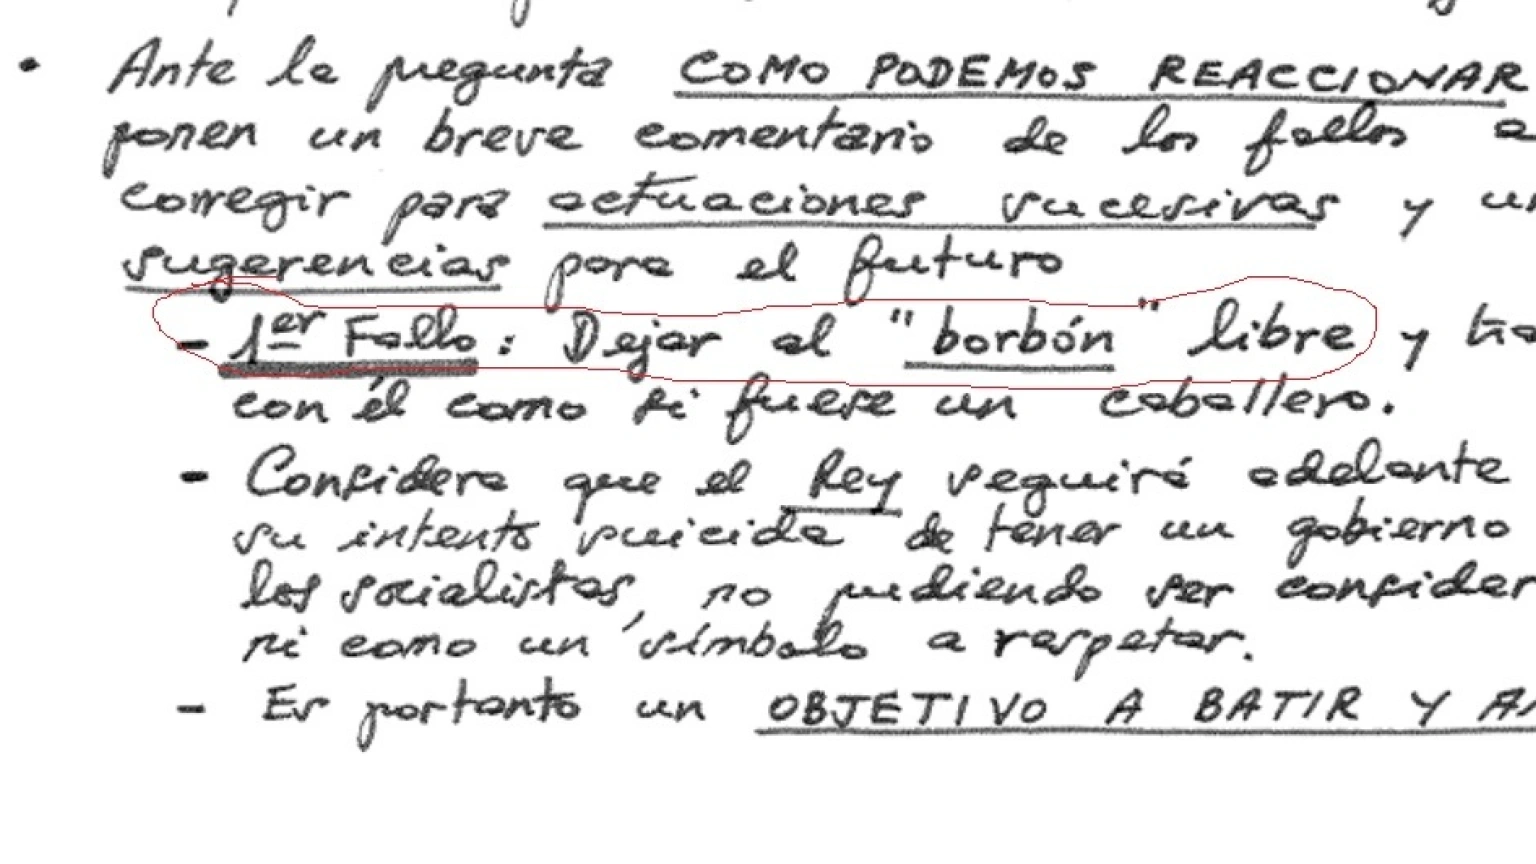 • Ante la pregunta COMO PODEMOS REACCIONAR
ponen un breve comentario de los fallos a
corregir para actuaciones sucesivas y
sugerencias para el futuro
- 1er Fallo: Dejar al "borbón" libre y
con él como si fuese un caballero.
- Considera que el Rey seguirá adelante
su intento suicida de tener un gobierno
los socialistas, no pudiendo ser
ni como un símbolo a respetar.
- Es portanto un OBJETIVO A BATIR Y